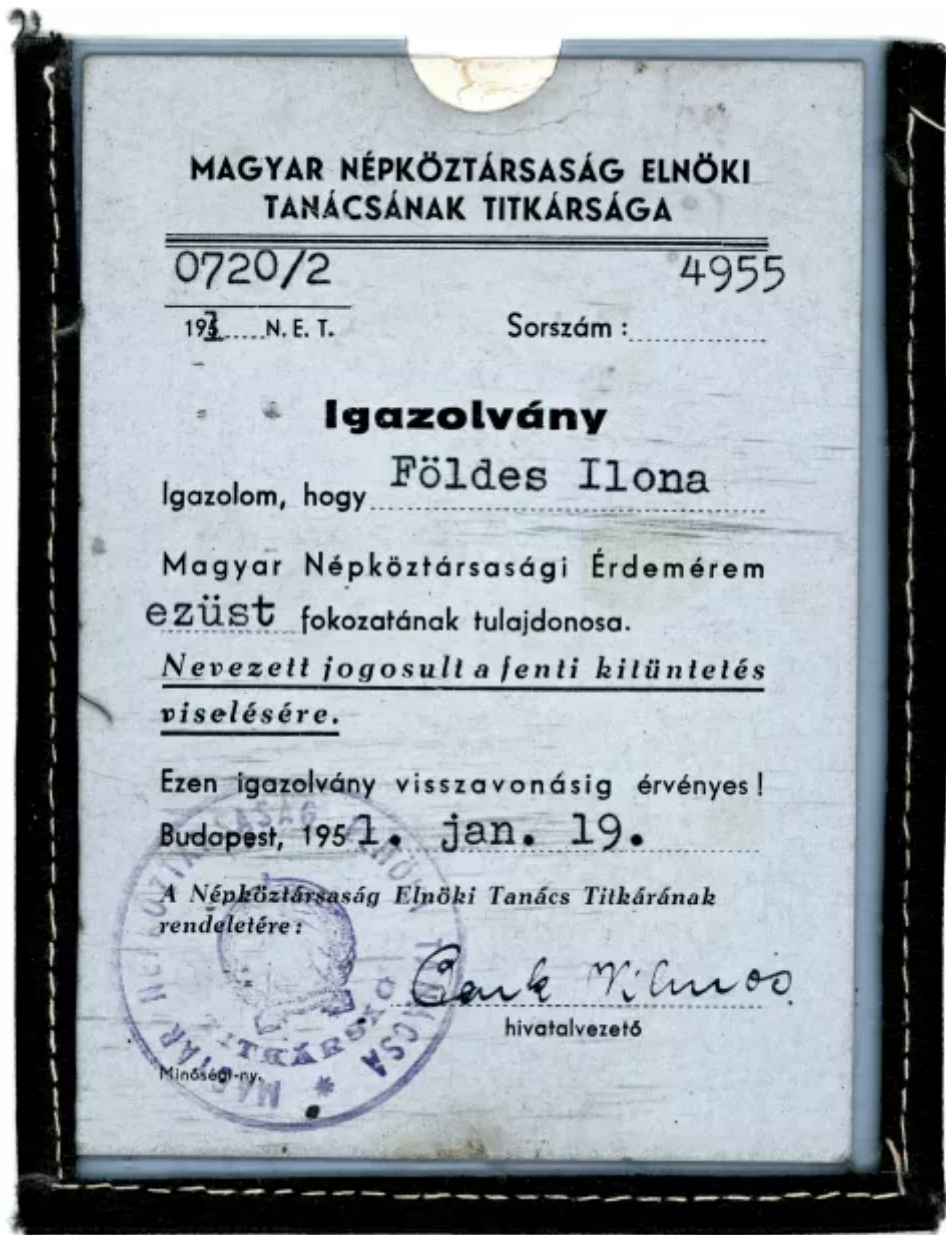 MAGYAR NÉPKÖZTÁRSASÁG ELNÖKI
TANÁCSÁNAK TITKÁRSÁGA
0720/2 4955
195 N. E. T. Sorszám :
Igazolvány
Igazolom, hogy Földes Ilona
Magyar Népköztársasági Érdemérem
ezüst fokozatának tulajdonosa.
Nevezett jogosult a fenti kitüntetés
viselésére.
Ezen igazolvány visszavonásig érvényes!
Budapest, 1951. jan. 19.
A Népköztársaság Elnöki Tanács Titkárának
rendeletére :
Vilmos
hivatalvezető
Minőségi-ny.
MAGYAR NÉPKÖZTÁRSASÁG ELNÖKI TANÁCSA
TITKÁRSÁG